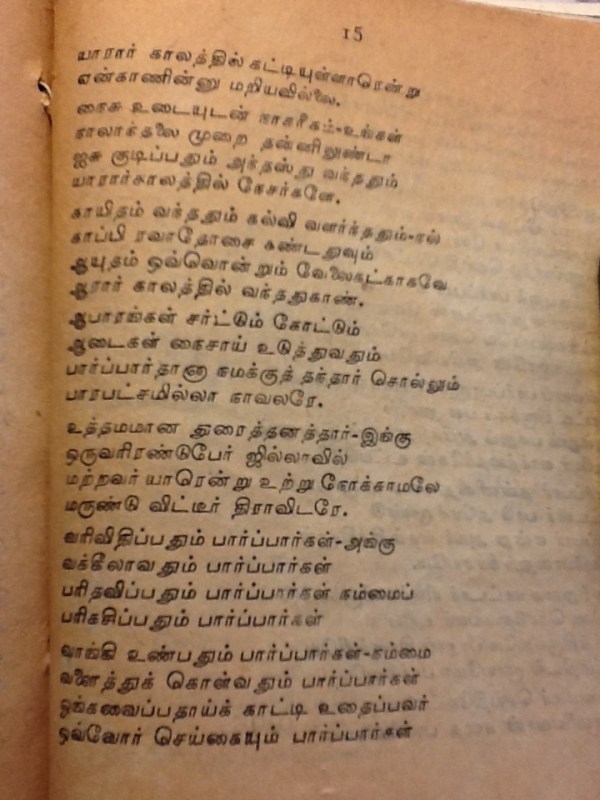 15
யாரார் காலத்தில் கட்டியுள்ளாரென்று
ஏன்காணின்னு மறியவில்லை.
நைசு உடையுடன் நாகரீகம்-உங்கள்
நாலாக்தலை முறை தன்னிலுண்டா
ஐசு குடிப்பதும் அந்தஸ்து வந்ததும்
யாரார்காலத்தில் நேசர்களே.
காயிதம் வந்ததும் கல்வி வளர்ந்ததும்-நல்
காப்பி ரவாதோசை கண்டதுவும்
ஆயுதம் ஒவ்வொன்றும் வேலைகட்காகவே
ஆரார் காலத்தில் வந்ததுகாண்.
ஆபாரங்கள் சர்ட்டும் கோட்டும்
ஆடைகள் நைசாய் உடுத்துவதும்
பார்ப்பார்தானா நமக்குத் தந்தார் சொல்லும்
பாரபட்சமில்லா நாவலரே.
உத்தமமான துரைத்தனத்தார்-இங்கு
ஒருவரிரண்டுபேர் ஜில்லாவில்
மற்றவர் யாரென்று உற்று நோக்காமலே
மருண்டு விட்டீர் திராவிடரே.
வரிவிதிப்பதும் பார்ப்பார்கள்-அங்கு
வக்கீலாவதும் பார்ப்பார்கள்
பரிதவிப்பதும் பார்ப்பார்கள் நம்மைப்
பரிகசிப்பதும் பார்ப்பார்கள்
வாங்கி உண்பதும் பார்ப்பார்கள்-நம்மை
வளைத்துக் கொள்வதும் பார்ப்பார்கள்
ஓங்கவைப்பதாய்க் காட்டி உதைப்பவர்
ஒவ்வோர் செய்கையும் பார்ப்பார்கள்